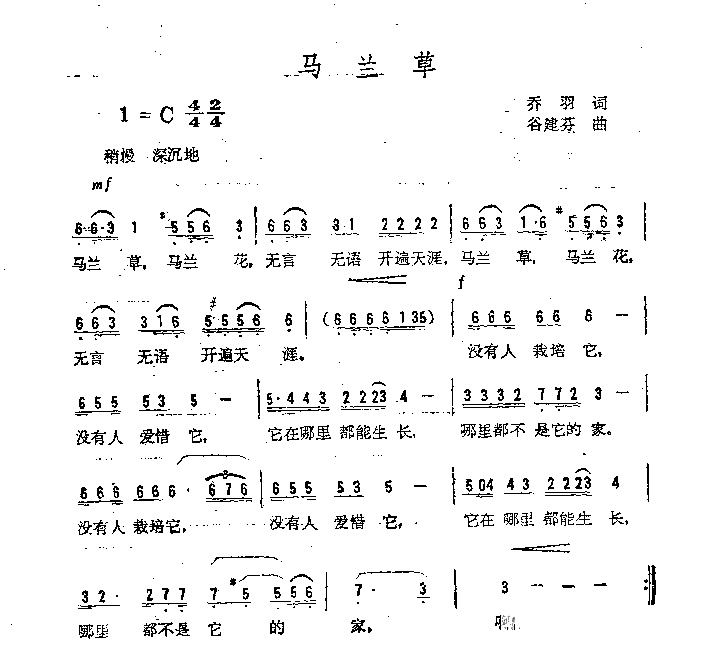 马兰草
1 = C 4/4 2/4
乔羽 词
谷建芬 曲
稍慢 深沉地
mf
6 6·3 1 #5 5 6 3 | 6 6 3 3 1 2 2 2 2 | 6 6 3 1·6 #5 5 6 3 |
马兰 草, 马兰 花, 无言 无语 开遍天涯, 马兰 草, 马兰 花,
f
6 6 3 3 1 6 #5 5 5 6 6 | (6 6 6 6 1 3 5) | 6 6 6 6 6 6 —
无言 无语 开遍天 涯。 没有人 栽培 它,
6 5 5 5 3 5 — | 5·4 4 3 2 2 2 3 4 — | 3 3 3 2 7 7 2 3 —
没有人 爱惜 它, 它在哪里 都能生 长, 哪里都不 是它的 家。
6 6 6 6 6 6 · 6 7 6 | 6 5 5 5 3 5 — | 5 0 4 4 3 2 2 2 3 4
3
没有人 栽培它, 没有人 爱惜 它, 它在 哪里 都能生 长,
3 2 · 2 7 7 7 #5 5 5 6 | 7 · 3 | 3 — — — :‖
哪里 都不是 它 的 家。 啊